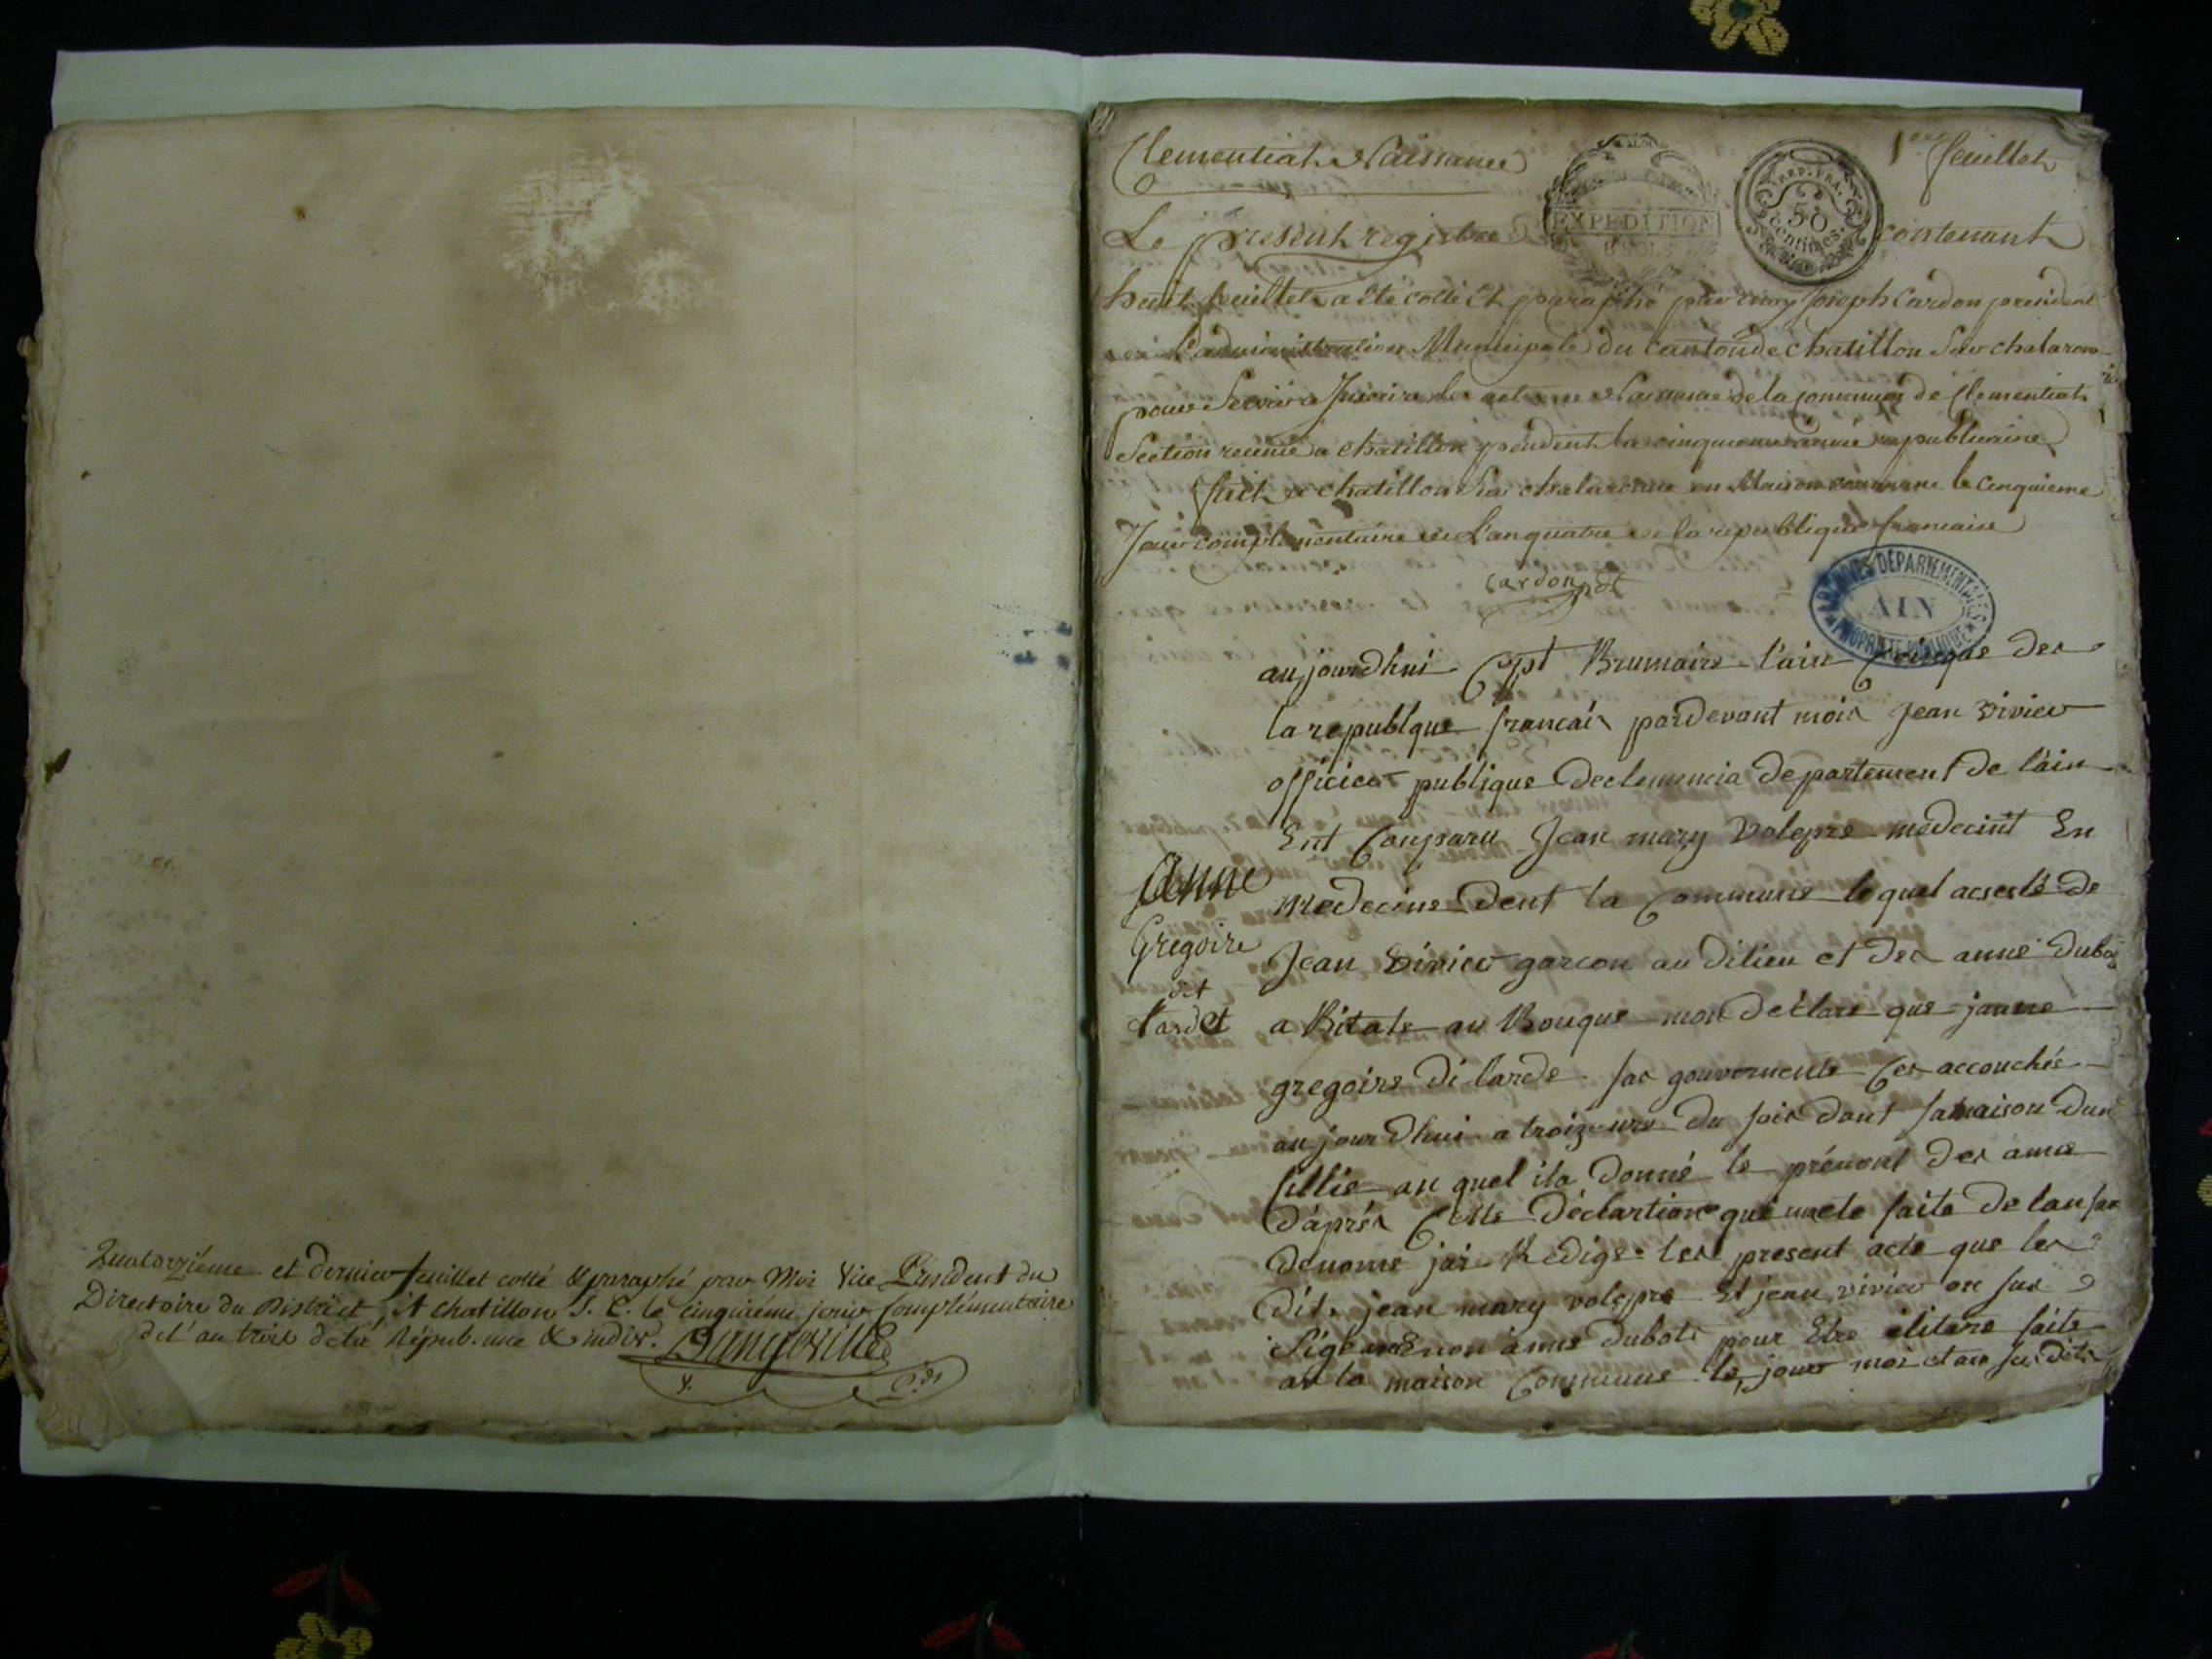 Quatorzième et dernier feuillet cotté & paraphé par Moi Vice Président du
Directoire du District, A chatillon S. C. le cinquième jour Complémentaire
de l'an trois de la Répub. une & indiv. Dangeville
V. P.dt
Clementiat Naissance
1er feuillet
EXPEDITION
REP. FRA.
50
centimes.
Le présent registre contenant
huit feuillets a été cotté Et paraphé par moy Joseph Cardon président
de l'administration Municipale du canton de chatillon Sur chalaronne
pour Servir a Inscrire les actes de Naissance de la commune de Clementiat
Section reunie a chatillon pendent la cinquieme année republicaine
fait a chatillon Sur chalaronne en Maison commune le cinquieme
Jour complémentaire de L'an quatre de la republique francaise
Cardon pdt
ARCHIVES DÉPARTEMENTALES
AIN
PROPRIÉTÉ PUBLIQUE
aujourdhui Cept Brumaire l'ain Cinque des
la republque francais pardevant mois Jean vivier
officier publique declemencia departement de l'ain
Ent Conparu Jean mary volepre medecint En
medecine dent la Commune le quel acsesté de
Jean vivier garcon au dilieu et des anne dubos
a Bitate au Bouque mon déclare que janne
gregoire di larde sas gouvernente Ces accouchée
aujourdhui a troiz eure du soir dant samaison dun
fillie au quel ila donné le prénont des anne
dáprés Cette déclartion que mete faite de lansan
denome jai Redige les present acte que les
dit jean mary volepre Et jean vivier on sus
Signe non anne dubots pour Etre élitere faite
au la maison Commune le jour moi et an sus dit
Anne
Gregoire
det
tardet